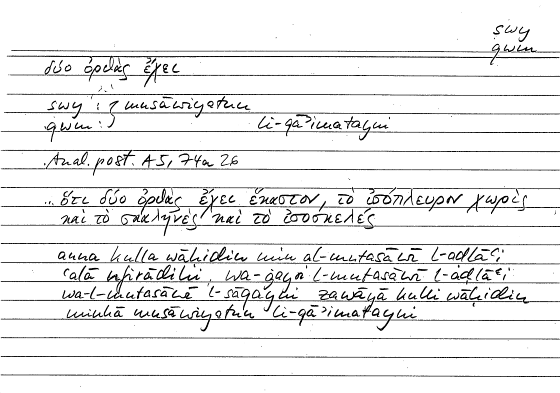 swy
qwm
δύο ὀρθὰς ἔχει
swy : } musāwiyatun
qwm : li-qāʾimatayni
Anal. post. A5, 74a 26
... ὅτι δύο ὀρθὰς ἔχει ἕκαστον, τὸ ἰσόπλευρον χωρὶς
καὶ τὸ σκαληνὲς καὶ τὸ ἰσοσκελές
anna kulla wāḥidin min al-mutasāwī l-aḍlāʿi
ʿalā nfirādihi, wa-ġayri l-mutasāwī l-aḍlāʿi
wa-l-mutasāwī l-sāqayni zawāyā kulli wāḥidin
minhā musāwiyatun li-qāʾimatayni